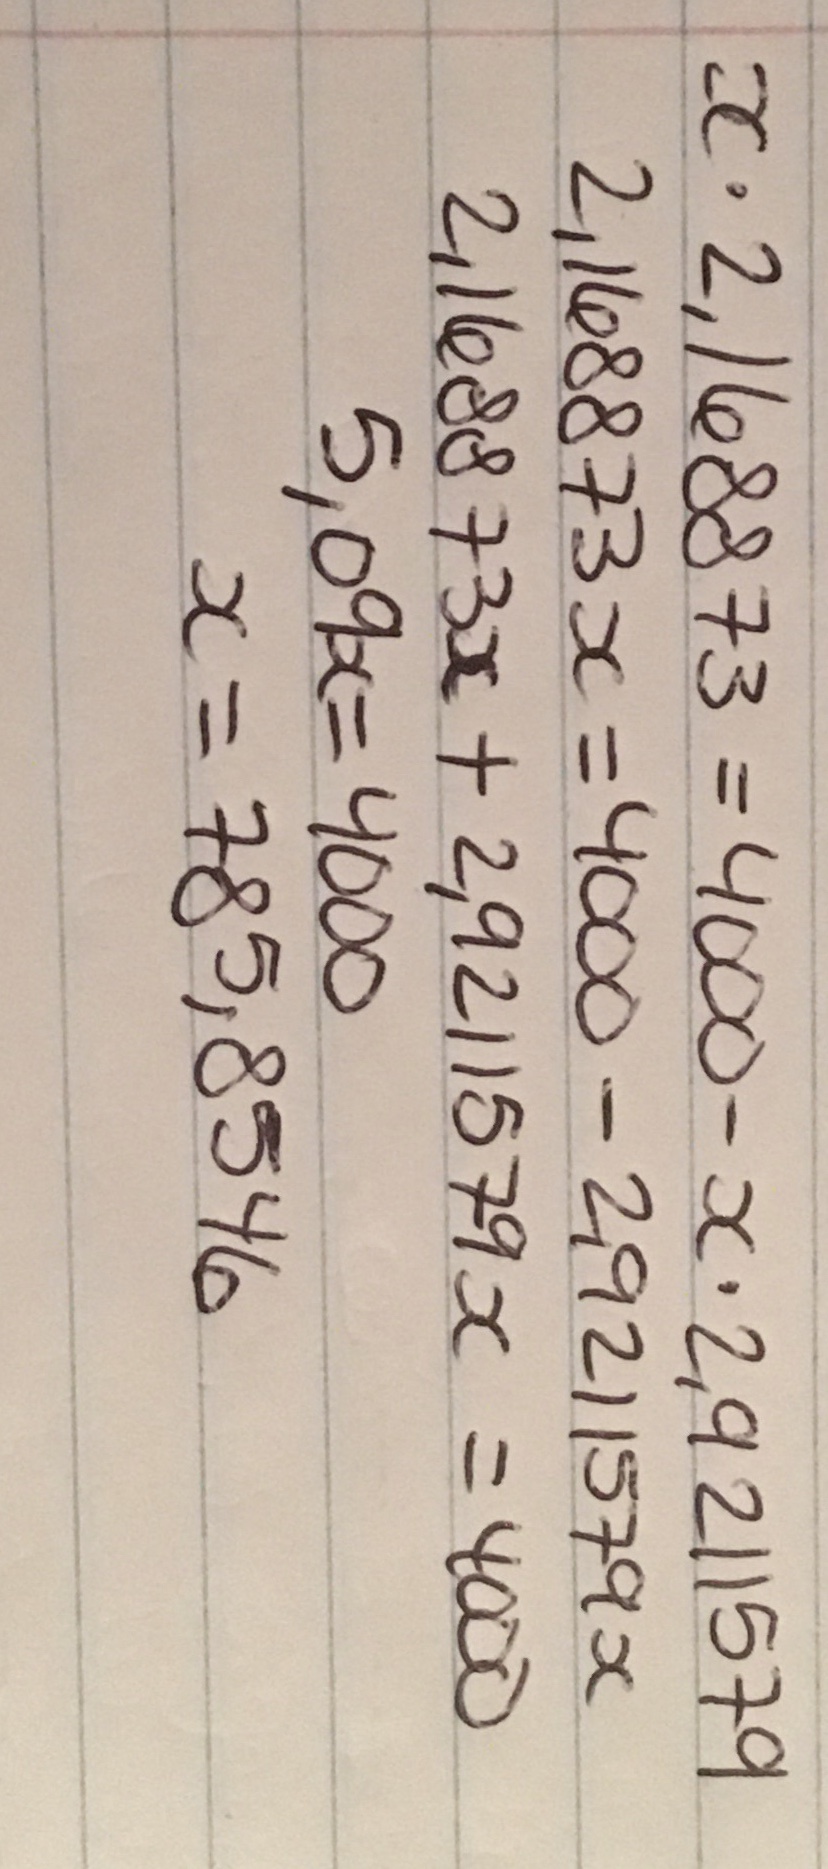 x · 2,168873 = 4000 - x · 2,9211579
2,168873x = 4000 - 2,9211579x
2,168873x + 2,9211579x = 4000
5,09x = 4000
x = 785,8546